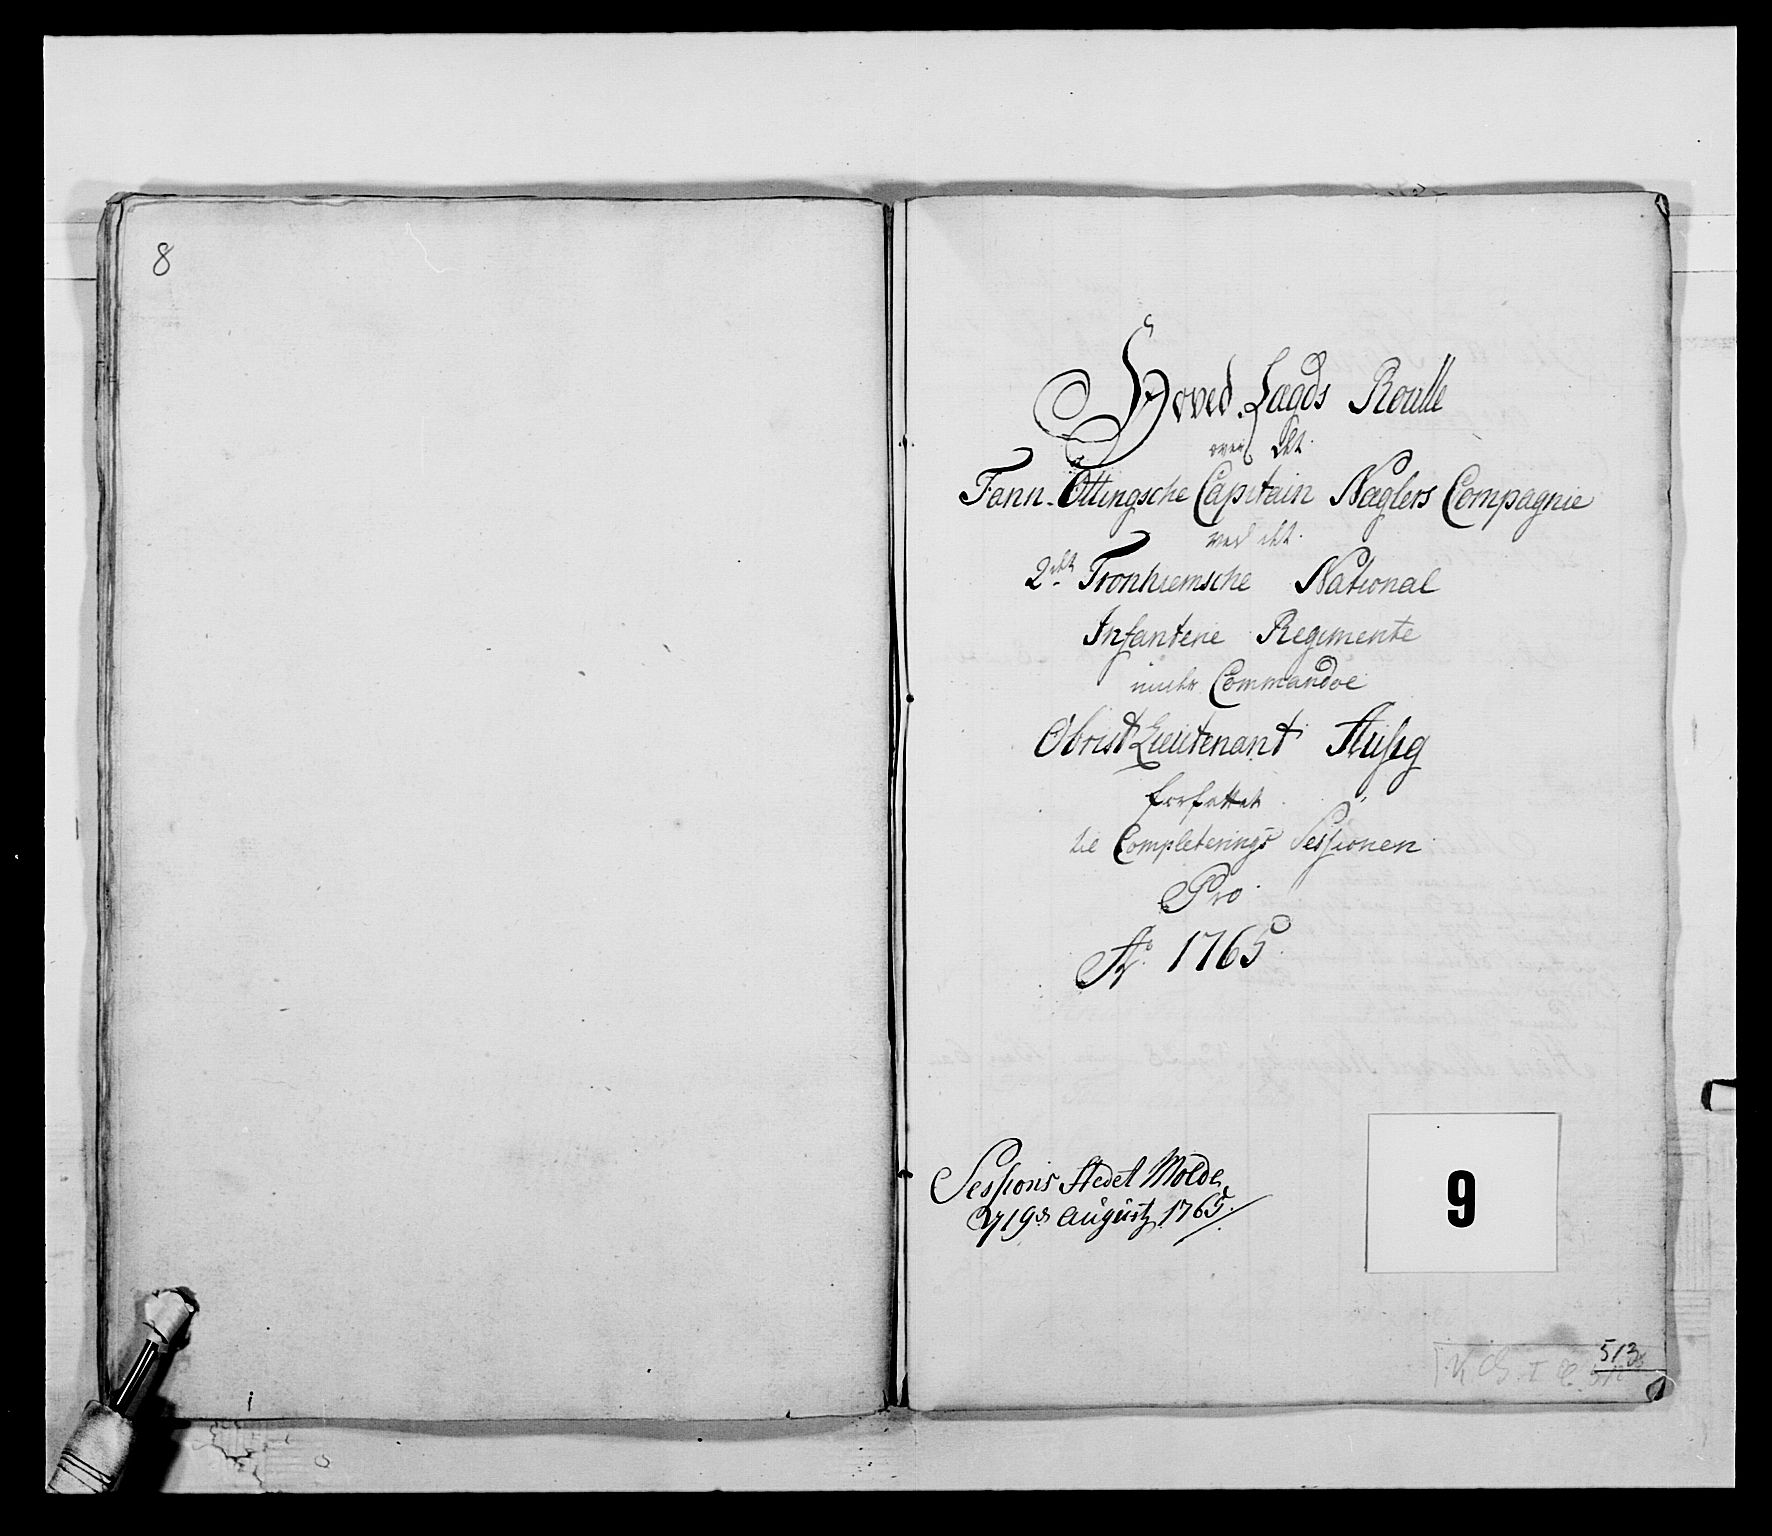 8
Hoved Lægds Roulle
over det
Fann-Ottingsche Capitain Nøglers Compagnie
ved det
2det Tronhiemsche National
Infanterie Regimente
under Commando
Obrist Lieutenant
forfattet
Completerings Sessionen
Pro
Ao 1765
Sessions Stedet Molde
19de Augustz 1765.
9
513